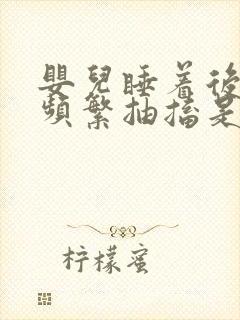 嬰兒睡着後
頻繁抽搐是
柠檬蜜